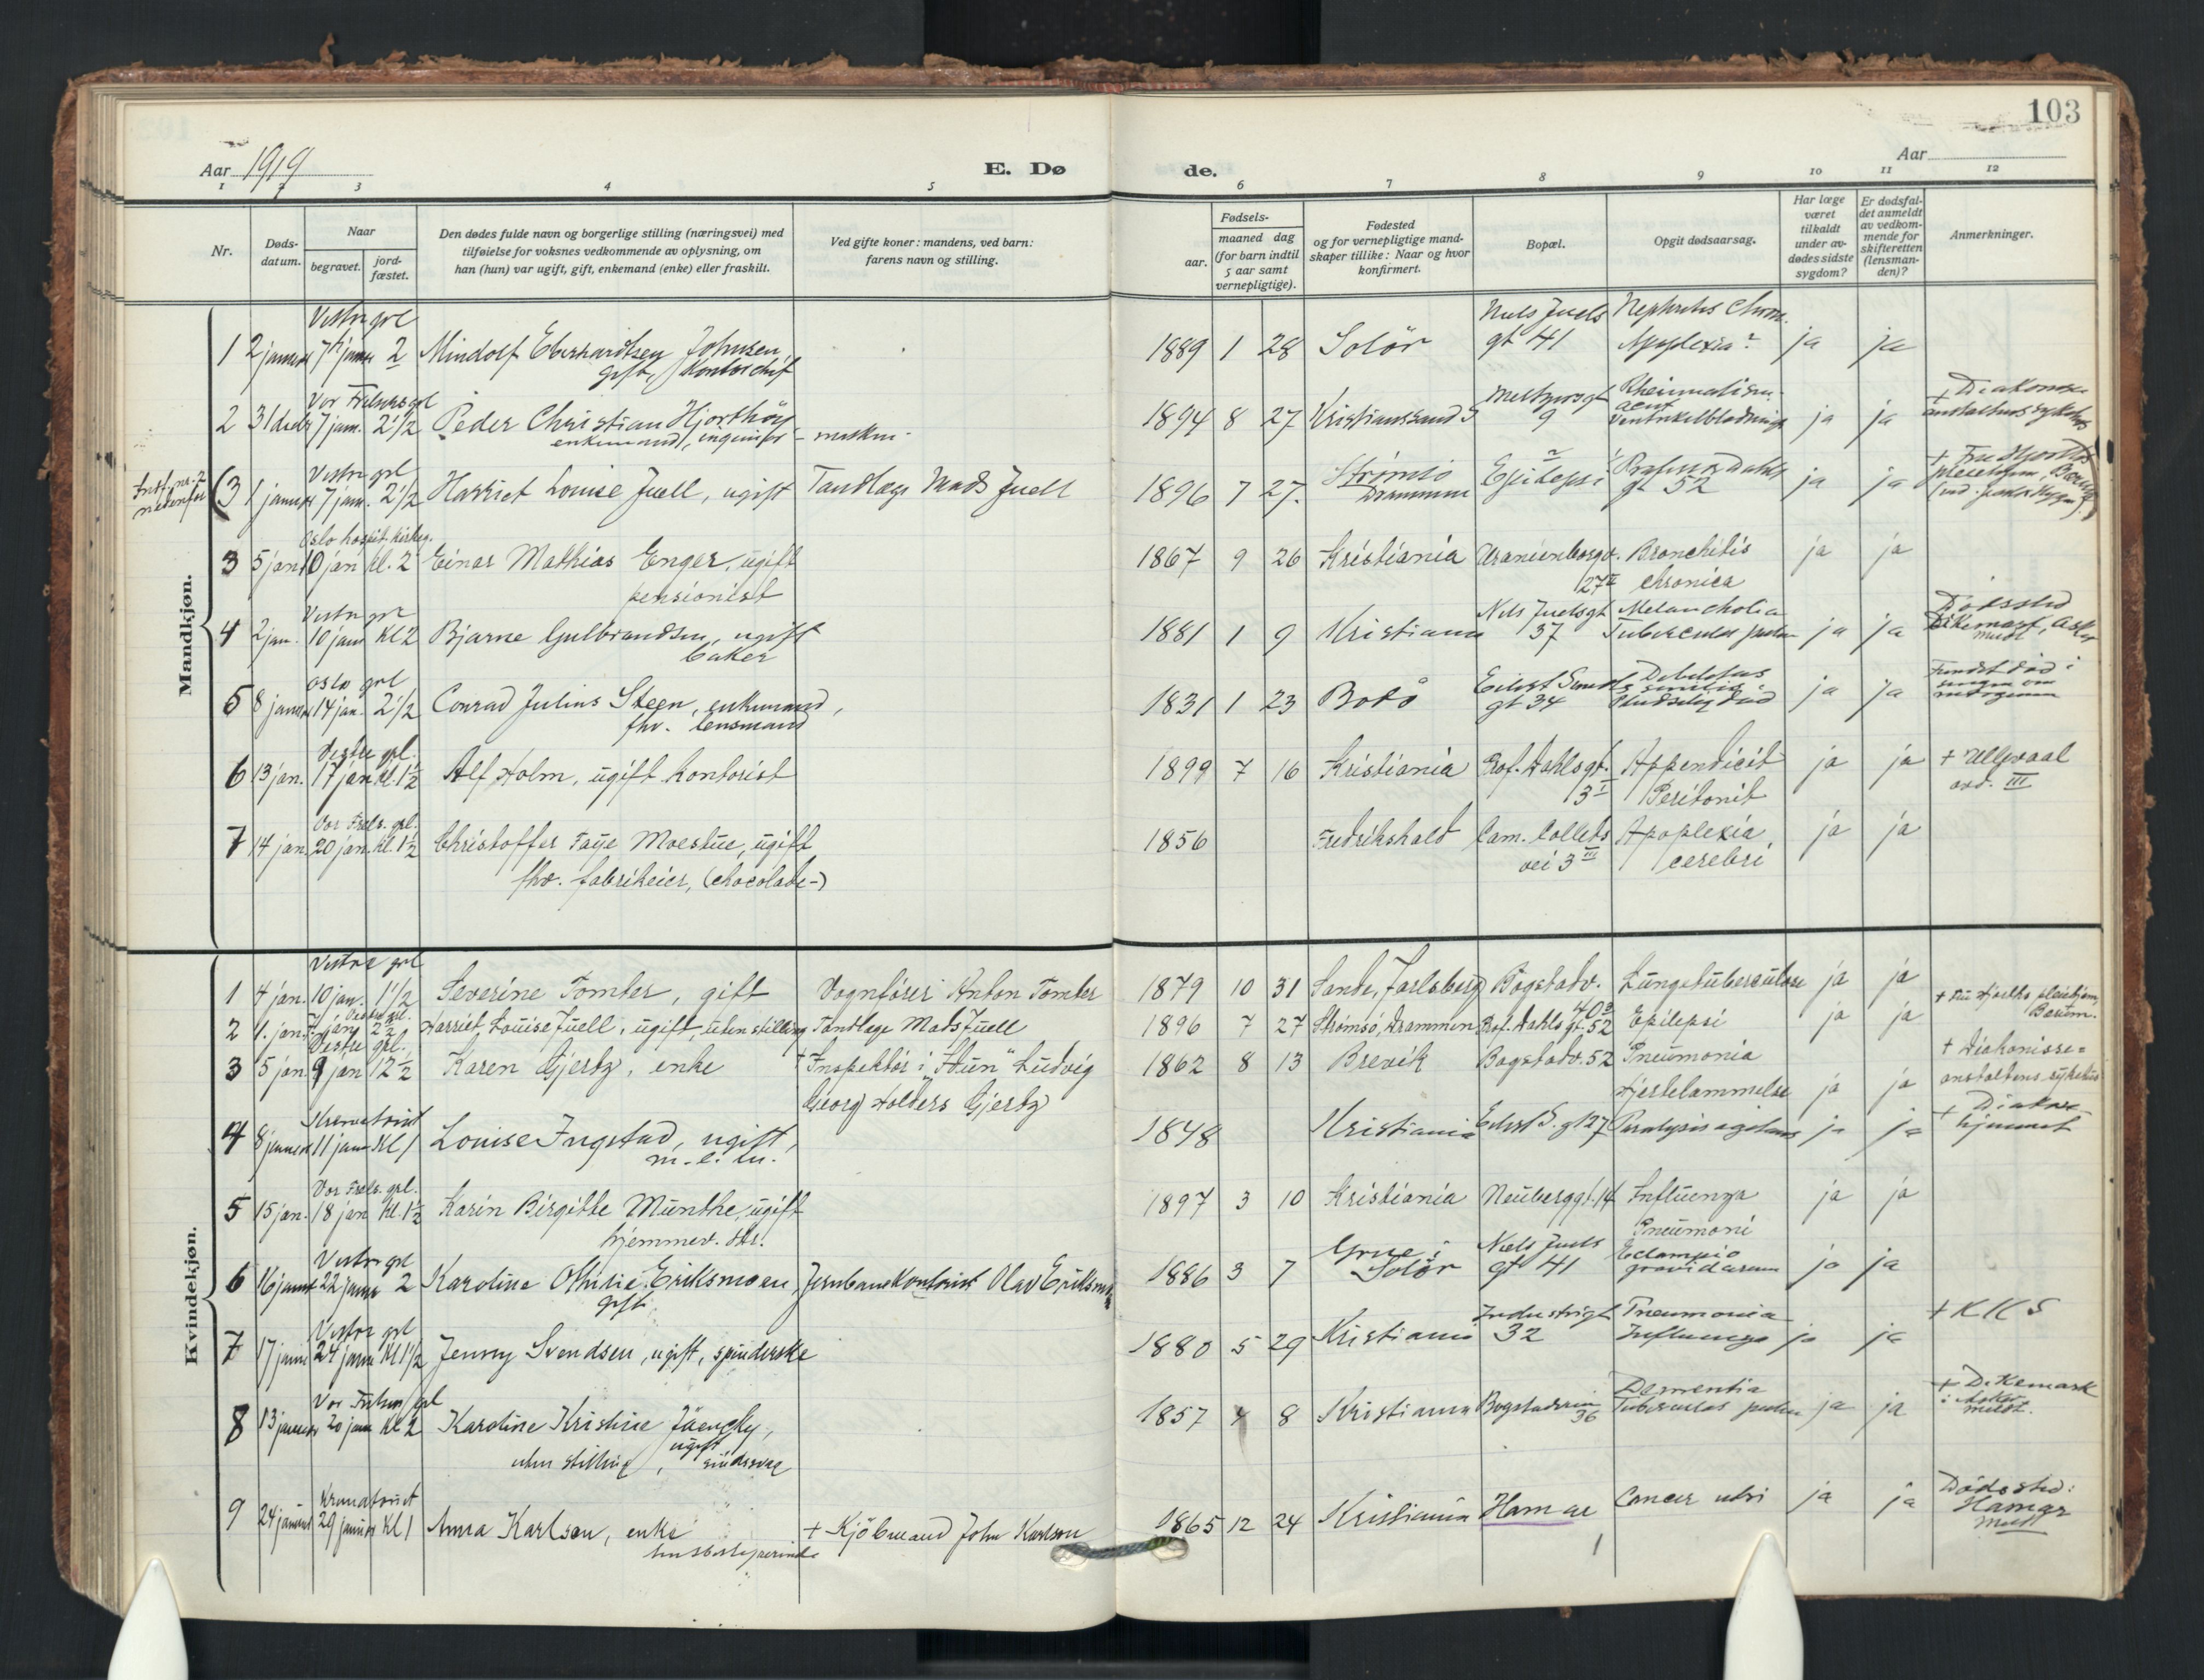 103
Aar 1919
E. Dø
de.
Aar
1 2 3 4 5 6 7 8 9 10 11 12
Nr.
Døds-
datum.
Naar
begravet.
jord-
fæstet.
Den dødes fulde navn og borgerlige stilling (næringsvei) med
tilføielse for voksnes vedkommende av oplysning, om
han (hun) var ugift, gift, enkemand (enke) eller fraskilt.
Ved gifte koner: mandens, ved barn:
farens navn og stilling.
Fødsels-
aar.
maaned dag
(for barn indtil
5 aar samt
vernepligtige).
Fødested
og for vernepligtige mand-
skaper tillike: Naar og hvor
konfirmert.
Bopæl.
Opgit dødsaarsag.
Har læge
været
tilkaldt
under av-
dødes sidste
sygdom?
Er dødsfal-
det anmeldt
av vedkom-
mende for
skifteretten
(lensman-
den)?
Anmerkninger.
Mandkjøn.
Vestre grl Niels Juels Nephritis Chron.
1 2 januar 7 januar 2 Mindolf Eberhardtsen Johnsen 1889 1 28 Solör gt 41 Apoplexia? ja ja
gift, Kontorchef
Vor Frelsers grl Rheumatism. + Diakonisse
2 31 decbr 7 jan. 2 1/2 Peder Christian Hjorthöy 1894 8 27 Kristianssand S 9 acut Ventrikelblødning ja ja anstaltens sykehus
enkemand, ingeniør - maskin-
Vestre grl
(3 1 januar 7 jan. 2 1/2 Harriet Louise Juell, ugift Tandlæge Mads Juell 1896 7 27. Strømsö Drammen Epilepsi Professor Dahls gt 52 ja ja
Indf. nr. 2
nedenfor
Oslo hospit. kirkeg.
3 5 jan 10 jan kl. 2 Einar Mathias Enger, ugift 1867 9 26 Kristiania Uranienborgv. Bronchitis ja ja
pensionist 27 II chronica
Vestre grl Nils Juelsgt Melancholia Dødssted
4 2 jan. 10 jan Kl 2 Bjarne Gulbrandsen, ugift 1881 1 9 Kristiania 37 Tuberculos pulm ja ja Dikemark, Asker
baker meldt
Oslo grl Debilitas Fundet död i
5 8 januar 14 jan. 2 1/2 Conrad Julius Steen, enkemand, 1831 1 23 Bodö Eilert Sundts gt 34 senilis Pludselig död ja ja sengen om
fhv. lensmand morgenen
Vestre grl.
6 13 jan. 17 jan kl. 1 1/2 Alf Holm, ugift kontorist 1899 7 16 Kristiania Prof. Dahlsgt. Appendicit ja ja + Ullevaal
3 I Peritonit avd. III
Vor Frels. grl.
7 14 jan. 20 jan. kl. 1 1/2 Christoffer Faye Moestue, ugift 1856 Fredrikshald Cam. Colletts Apoplexia ja ja
fhv. fabrikeier, (chocolade-) vei 3 III cerebri
Kvindekjøn.
Vestre grl
1 4 jan. 10 jan. 1 1/2 Severine Tomter, gift Vognfører Anton Tomter 1879 10 31 Sande, Jarlsberg Bogstadv. Lungetuberculose ja ja
Vestre grl. 40 + Fru Hjorths pleiehjem,
2 1. jan. 7 jan 2 1/2 Harriet Louise Juell, ugift, uten stilling Tandlæge Mads Juell 1896 7 27 Strømsö, Drammen Prof. Dahls gt. 52 Epilepsi ja ja Bærum.
Vestre grl.
3 5 jan. 9 jan 12 1/2 Karen Gjertz, enke + Inspektør i "Idun" Ludvig 1862 8 13 Brevik Bogstadv. 52 Pneumonia + Diakonisse=
Georg Holders Gjertz Hjertelammelse ja ja anstaltens sykehus
Krematoriet + Diakon
4 8 januar 11 jan Kl 1 Louise Ingstad, ugift, 1848 Kristiania Eilert S. gt 27 Paralysis agitans ja ja hjemmet
Vor Frels. grl.
5 15 jan. 18 jan kl. 1 1/2 Karin Birgitte Munthe, ugift 1897 3 10 Kristiania Neuberggt. 14 Influenza ja ja
hjemmev. dtr. Pneumoni
Vestre grl Grue i Niels Juels Eclampsia
6 16 januar 22 januar 2 Karoline Othilie Eriksmoen, Jernbanekontorist Olav Eriksmoen 1886 3 7 Solör gt 41 gravidarum ja ja
gift
Vestre grl Industrigt Pneumonia + K K S
7 17 januar 24 januar Kl 1 1/2 Jenny Svendsen, ugift, spinderske 1880 5 29 Kristiania 32 Influenza ja ja
Vor Frelsers grl Dementia + Dikemark
8 13 januar 20 jan Kl 2 Karoline Kristine 1857 4 8 Kristiania Bogstadveien 36 Tuberculos pulm ja ja i Asker
uten stilling, ugift sindssvag meldt.
Krematoriet Dödssted:
9 24 januar 29 januar Kl 1 Anna Karlsen, enke + Kjöbmand John Karlsen 1865 12 24 Kristiania Hamar Cancer uteri ja ja Hamar
husbestyrerinde meldt